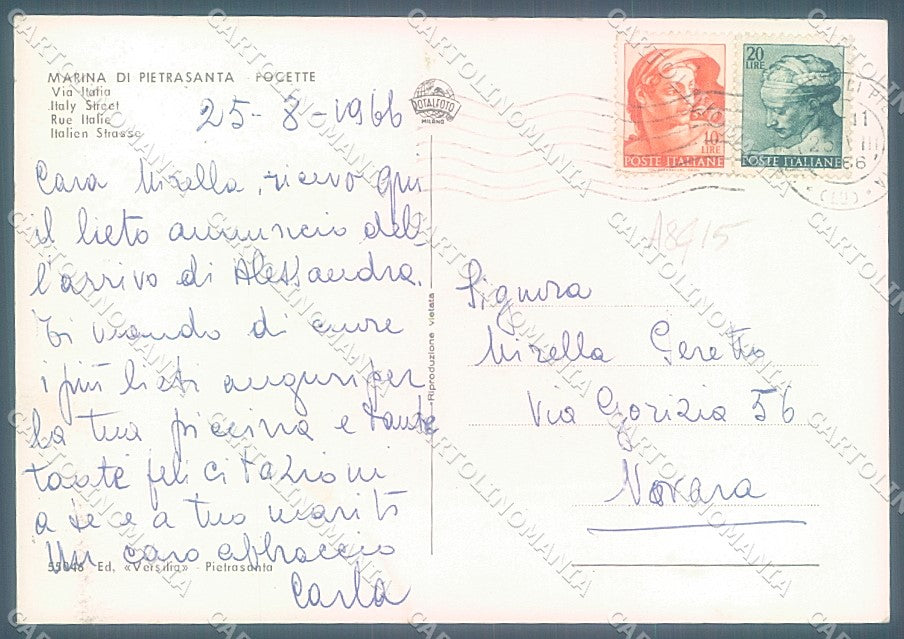 MARINA DI PIETRASANTA - FOCETTE
Via Italia
Italy Street
Rue Italie
Italien Strasse
25-8-1966
Cara Mirella, ricevo qui
il lieto annuncio del-
l'arrivo di Alessandra.
Ti mando di cuore
i più lieti auguri per
la tua piccina e tante
tante felicitazioni
a te e a tuo marito
Un caro abbraccio
Carla
55046 Ed. «Versilia» - Pietrasanta
ROTALFOTO
MILANO
Riproduzione vietata
10
LIRE
POSTE ITALIANE
20
LIRE
POSTE ITALIANE
(LU)
A8G15
Signora
Mirella Geretto
Via Gorizia 56
Novara
CARTOLINOMANIA